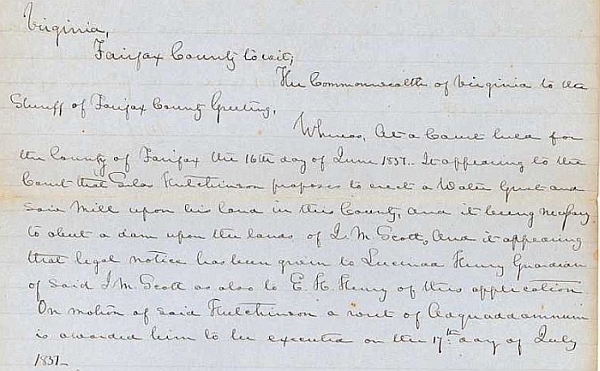 Virginia,
Fairfax County to wit;
The Commonwealth of Virginia to the
Sheriff of Fairfax County Greeting,
Whereas, At a Court held for
the County of Fairfax the 16th day of June 1857. It appearing to the
Court that Silas Hutchinson proposes to erect a Water Grist and
Saw Mill upon his land in this County, and it being necessary
to abut a dam upon the lands of J. M. Scott, And it appearing
that legal notice has been given to Lucinda Henry Guardian
of said J M. Scott as also to E. H. Henry of this application
On motion of said Hutchinson a writ of Adquaddamnum
is awarded him to be executed on the 17th day of July
1857